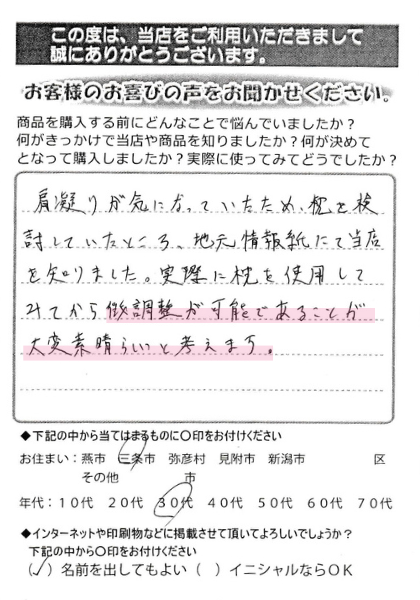 この度は、当店をご利用いただきまして
誠にありがとうございます。
お客様のお喜びの声をお聞かせください。
商品を購入する前にどんなことで悩んでいましたか？
何がきっかけで当店や商品を知りましたか？何が決めて
となって購入しましたか？実際に使ってみてどうでしたか？
肩凝りが気になっていたため、枕を検
討していたところ、地元情報紙にて当店
を知りました。実際に枕を使用して
みてから微調整が可能であることが
大変素晴らしいと考えます。
◆下記の中から当てはまるものに〇印をお付けください
お住まい：燕市 三条市 弥彦村 見附市 新潟市 区
その他 市
年代：１０代 ２０代 ３０代 ４０代 ５０代 ６０代 ７０代
◆インターネットや印刷物などに掲載させて頂いてよろしいでしょうか？
下記の中から〇印をお付けください
（✓）名前を出してもよい （ ）イニシャルならＯＫ